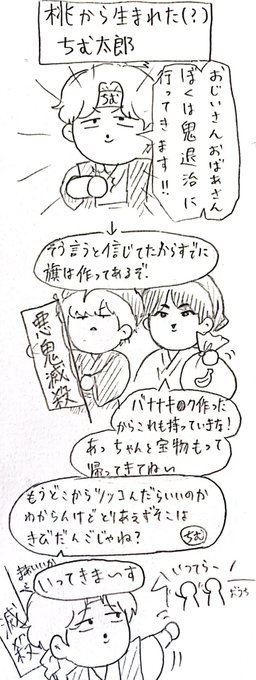 桃から生まれた(?)
ちむ太郎
おじいさんおばあさん
ぼくは鬼退治に
行ってきます!!
ちむ
そう言うと信じてたからすでに
旗は作ってあるぞ。
悪鬼滅殺
バナナキムタク作った
からこれも持っていきな!
あっちゃんと宝物もって
帰ってきてねい
もうどこからツッコんだらいいのか
わからんけどとりあえずそこは
きびだんごじゃね?
ちむ
まぁいいか
いってきまーす
いってらー
おうち
滅殺